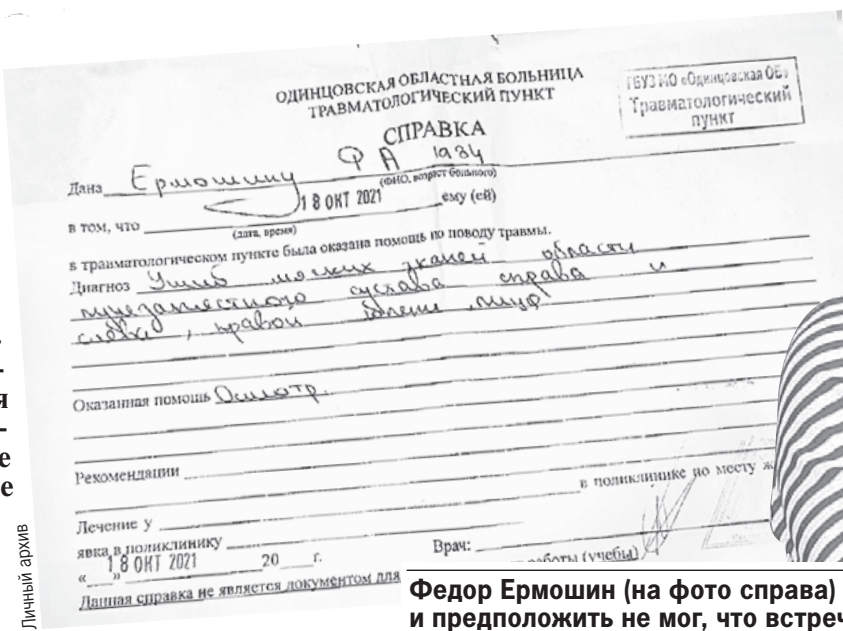 ОДИНЦОВСКАЯ ОБЛАСТНАЯ БОЛЬНИЦА
ТРАВМАТОЛОГИЧЕСКИЙ ПУНКТ
ГБУЗ МО «Одинцовская ОБ»
Травматологический
пункт
СПРАВКА
Дана Ермошину Ф А 1984
(ФИО, возраст больного)
в том, что 18 ОКТ 2021 ему (ей)
(дата, время)
в травматологическом пункте была оказана помощь по поводу травмы.
Диагноз Ушиб мягких тканей области
лучезапястного сустава справа и
слева, правой лица
Оказанная помощь Осмотр.
Рекомендации
в поликлинике по месту ж
Лечение у
явка в поликлинику
Врач:
« » 18 ОКТ 2021 20 г.
работы (учебы)
Данная справка не является документом для
Личный архив
Федор Ермошин (на фото справа)
и предположить не мог, что встреч